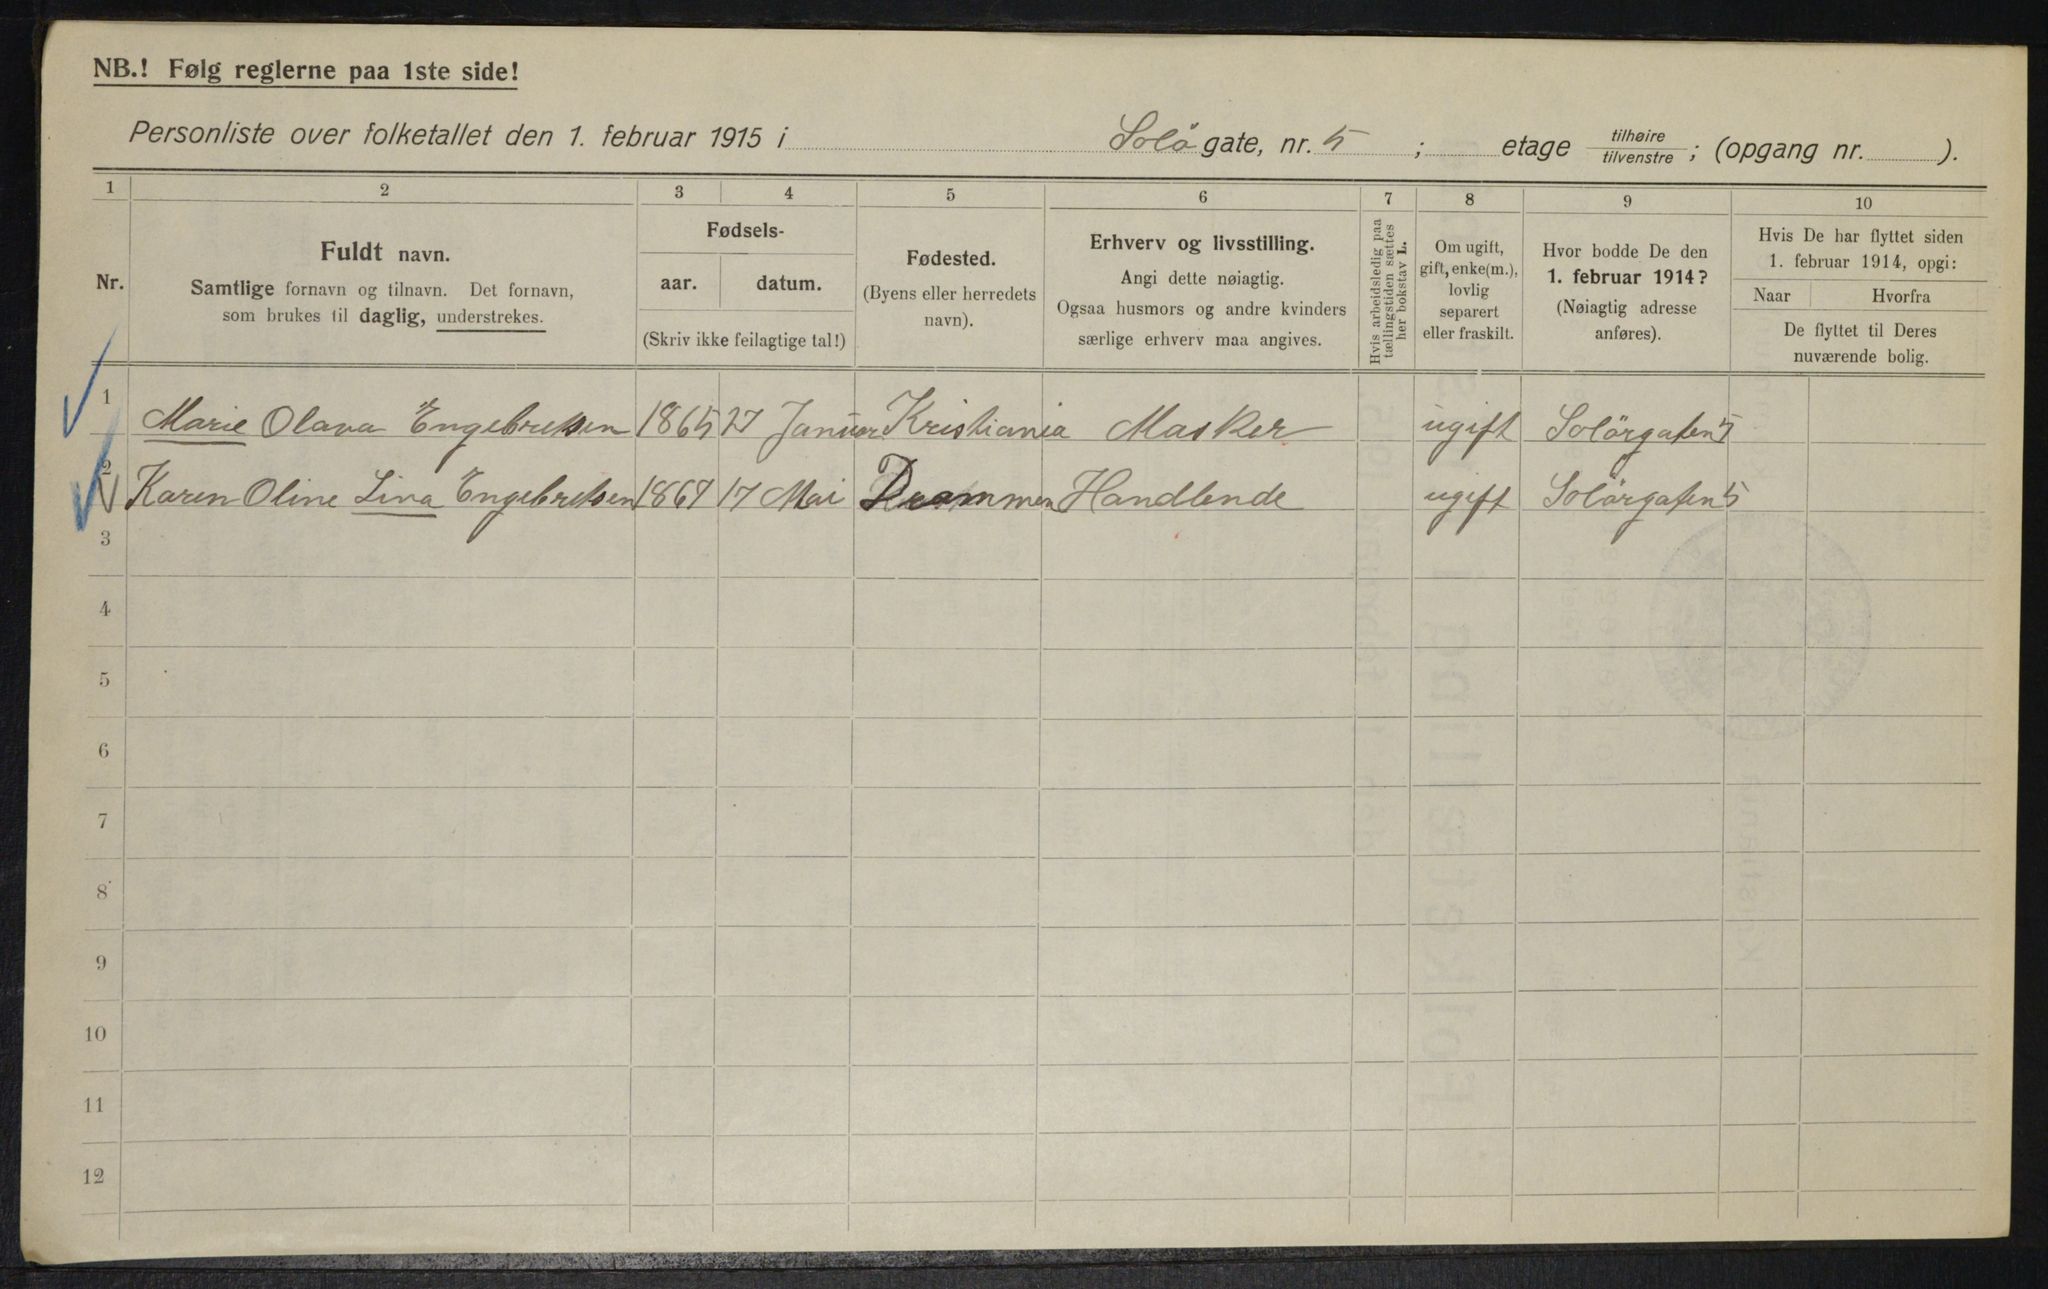 NB.! Følg reglerne paa 1ste side!
Personliste over folketallet den 1. februar 1915 i Solö gate, nr. 5 ; etage tilhøire tilvenstre ; (opgang nr. ).
1 2 3 4 5 6 7 8 9 10
Nr.
Fuldt navn.
Samtlige fornavn og tilnavn. Det fornavn,
som brukes til daglig, understrekes.
Fødsels-
aar. datum.
(Skriv ikke feilagtige tal!)
Fødested.
(Byens eller herredets
navn).
Erhverv og livsstilling.
Angi dette nøiagtig.
Ogsaa husmors og andre kvinders
særlige erhverv maa angives.
Hvis arbeidsledig paa
tællingstiden sættes
her bokstav L.
Om ugift,
gift, enke(m.),
lovlig
separert
eller fraskilt.
Hvor bodde De den
1. februar 1914?
(Nøiagtig adresse
anføres).
Hvis De har flyttet siden
1. februar 1914, opgi:
Naar Hvorfra
De flyttet til Deres
nuværende bolig.
1 Marie Olava Engebretsen 1865 27 Januar Kristiania Masker ugift Solörgaten 5
2 Karen Oline Lina Engebretsen 1867 17 Mai Drammen Handlende ugift Solörgaten 5
3
4
5
6
7
8
9
10
11
12